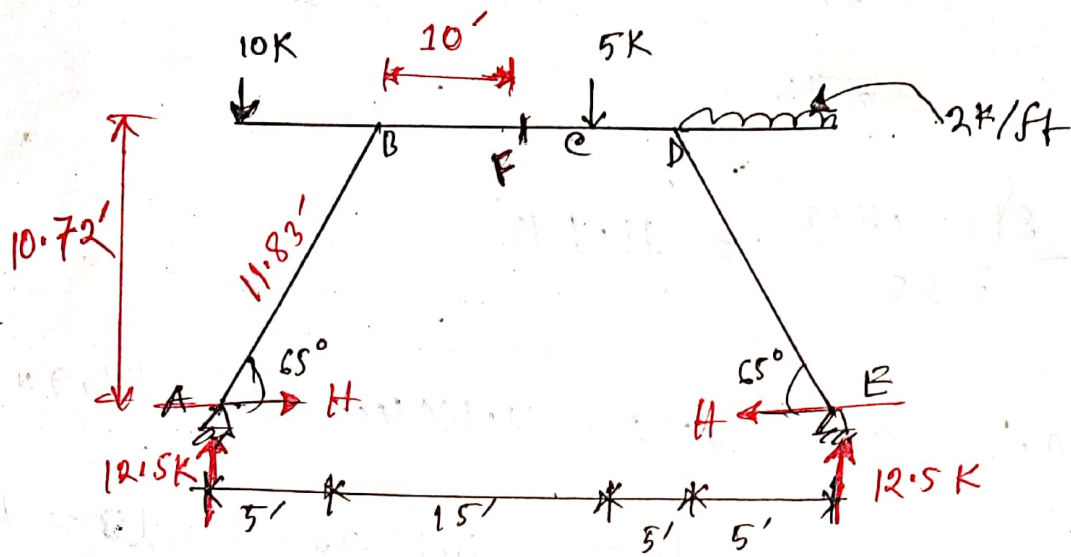 10K
10'
5K
2K/ft
B
F
C
D
10.72'
11.83'
65°
65°
A
H
H
E
12.5K
12.5 K
5'
15'
5'
5'